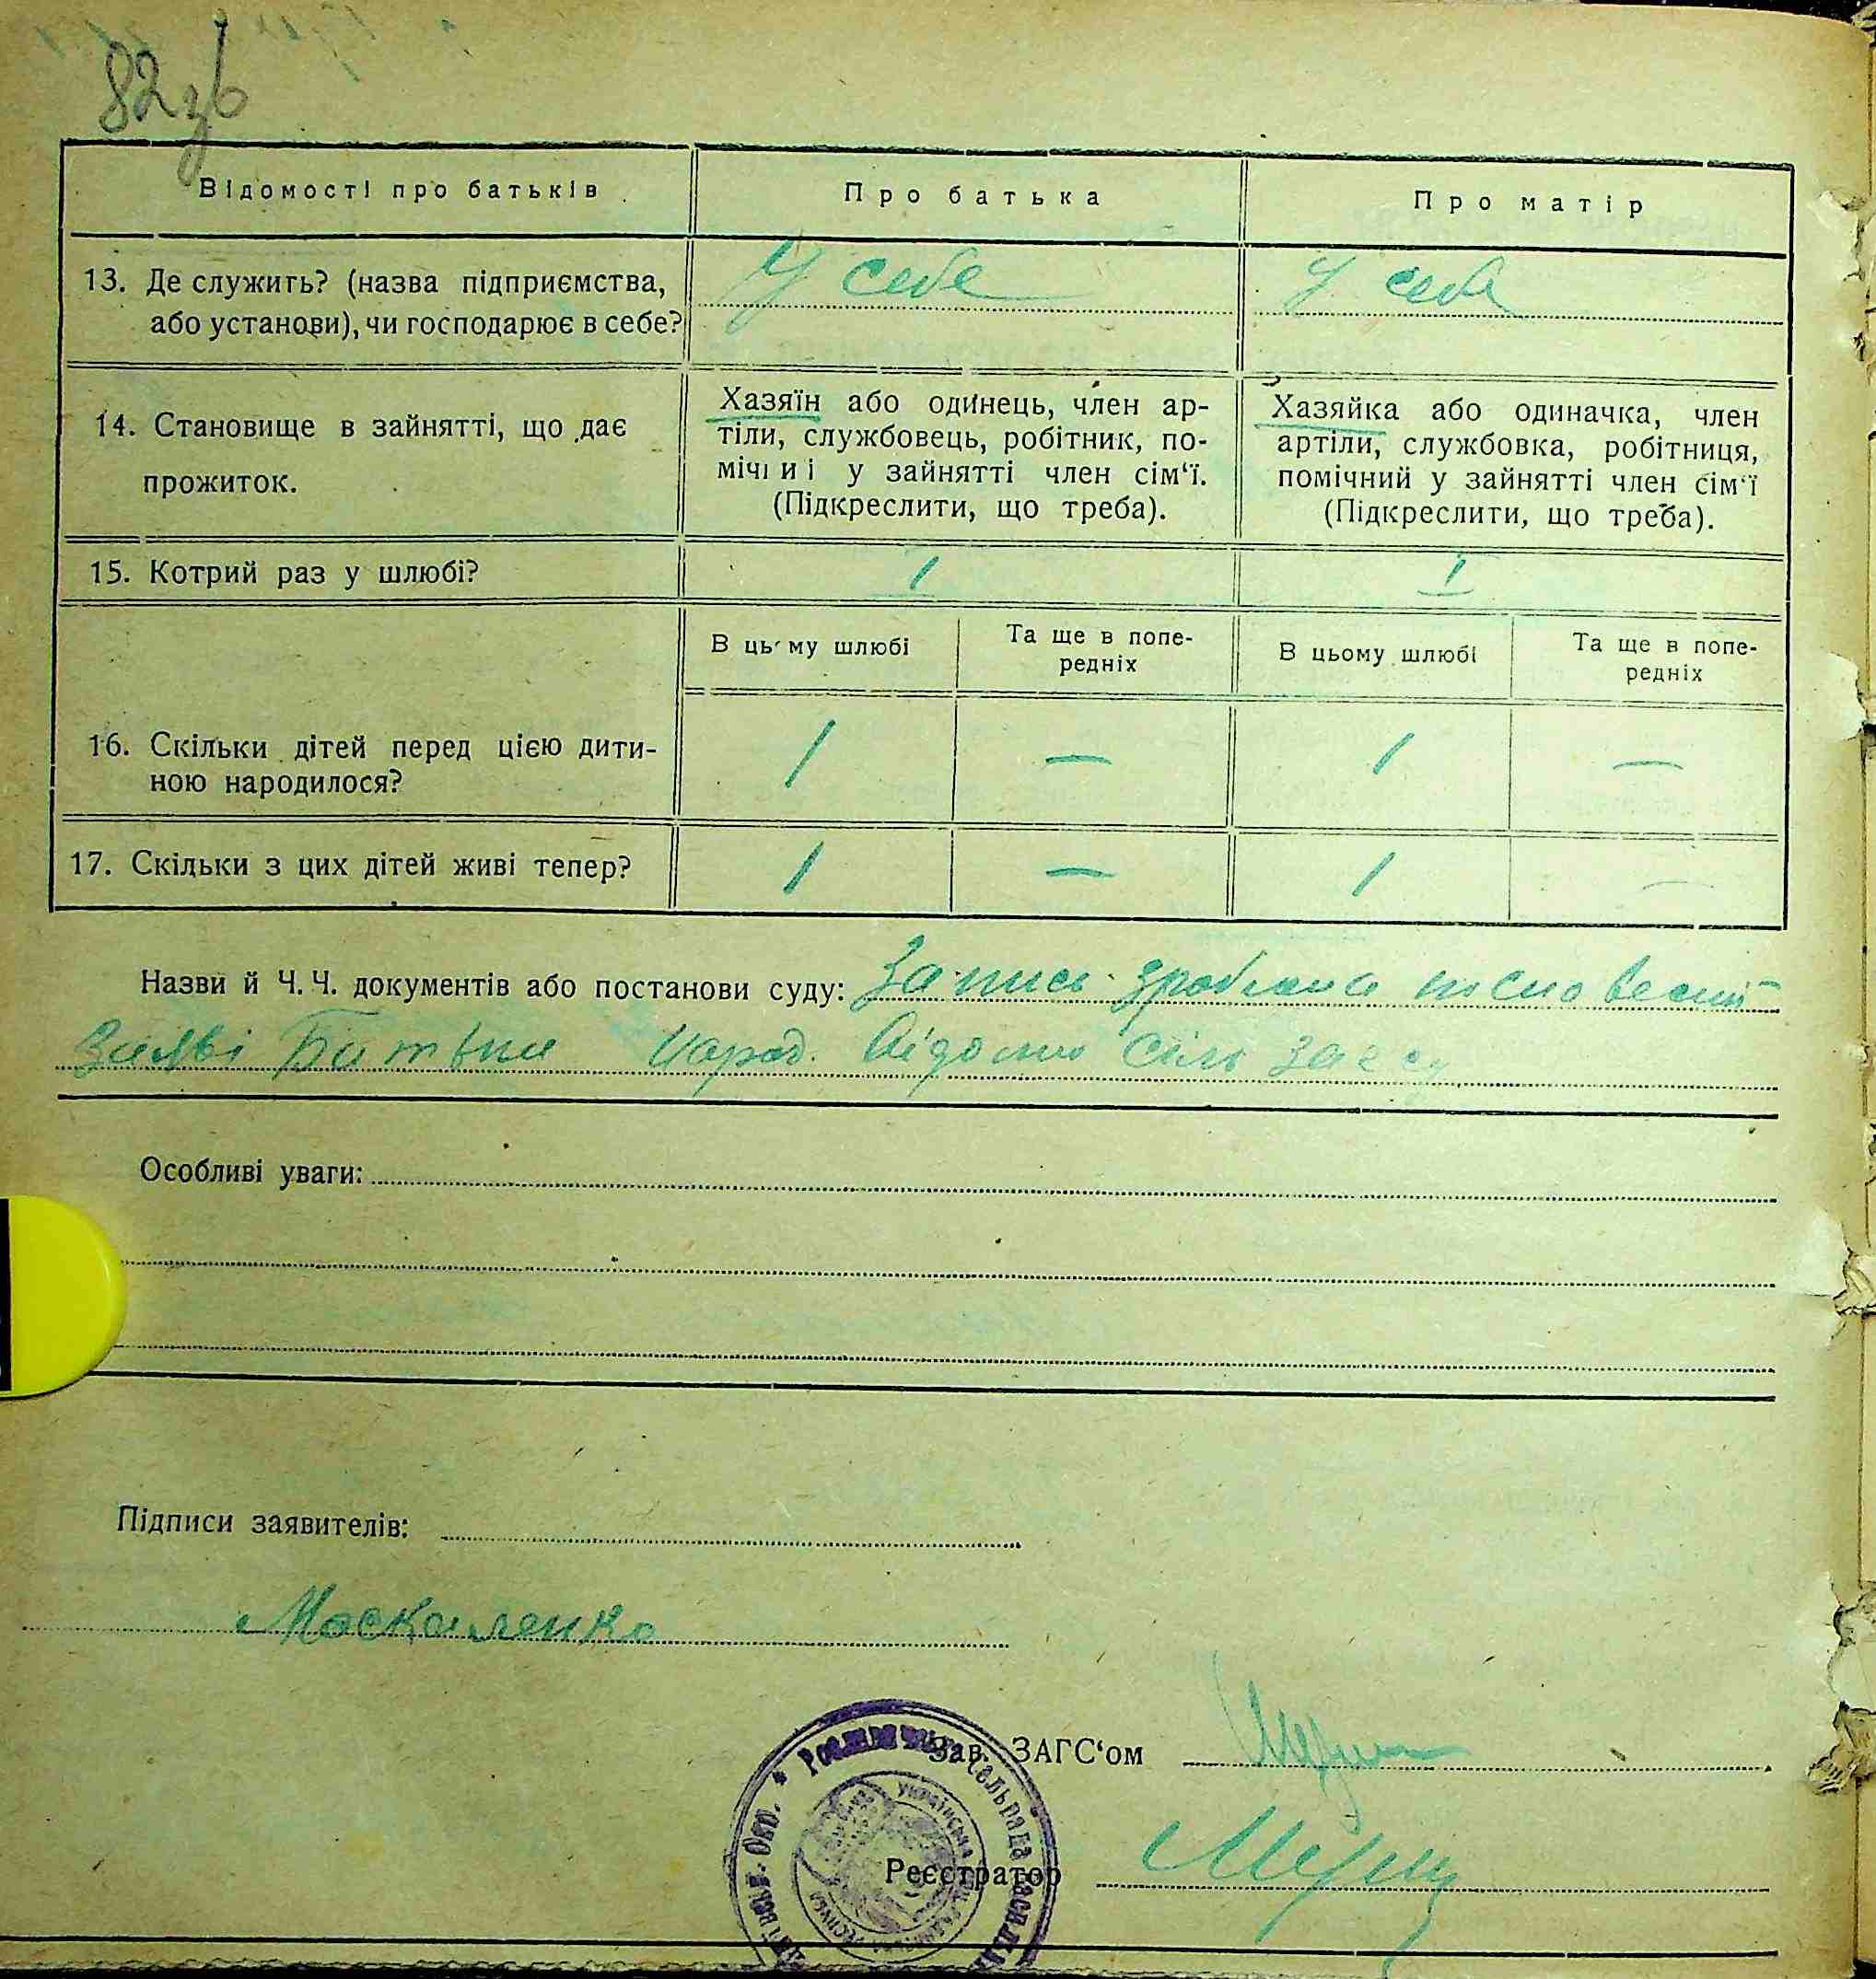 82зв
Відомості про батьків
Про батька
Про матір
13. Де служить? (назва підприємства,
або установи), чи господарює в себе?
У себе
У себе
14. Становище в зайнятті, що дає
прожиток.
Хазяїн або одинець, член ар-
тіли, службовець, робітник, по-
мічниі у зайнятті член сім'ї.
(Підкреслити, що треба).
Хазяйка або одиначка, член
артіли, службовка, робітниця,
помічний у зайнятті член сім'ї
(Підкреслити, що треба).
15. Котрий раз у шлюбі?
1
1
В цьому шлюбі
Та ще в попе-
редніх
В цьому шлюбі
Та ще в попе-
редніх
16. Скільки дітей перед цією дити-
ною народилося?
1 — 1 —
17. Скільки з цих дітей живі тепер?
1 — 1 —
Назви й Ч. Ч. документів або постанови суду: Запись зроблена
заяві Батька Сіль загсу
Особливі уваги:
Підписи заявителів:
Москаленко
Зав. ЗАГС'ом
Реєстратор
сельрада